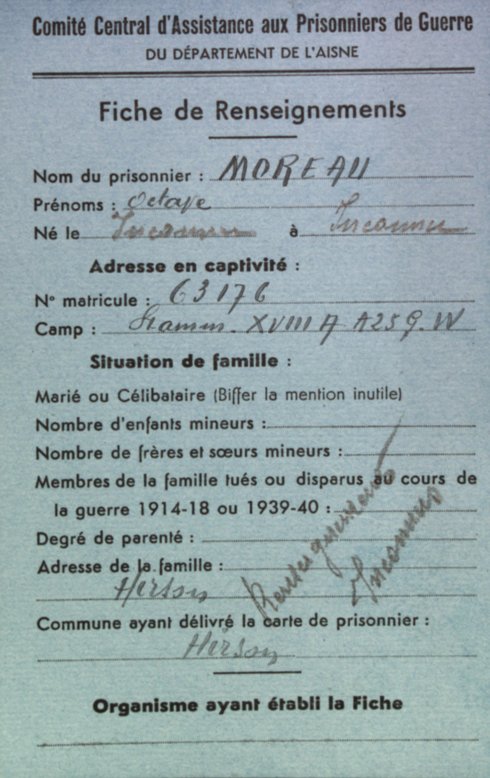 Comité Central d'Assistance aux Prisonniers de Guerre
DU DÉPARTEMENT DE L'AISNE
Fiche de Renseignements
Nom du prisonnier : MOREAU
Prénoms : Octave
Né le Inconnu à Inconnu
Adresse en captivité :
N° matricule : 63176
Camp : XVIII A
Situation de famille :
Marié ou Célibataire (Biffer la mention inutile)
Nombre d'enfants mineurs :
Nombre de frères et sœurs mineurs :
Membres de la famille tués ou disparus au cours de
la guerre 1914-18 ou 1939-40 :
Degré de parenté :
Adresse de la famille :
Hirson
Renseignements
Inconnus
Commune ayant délivré la carte de prisonnier :
Hirson
Organisme ayant établi la Fiche